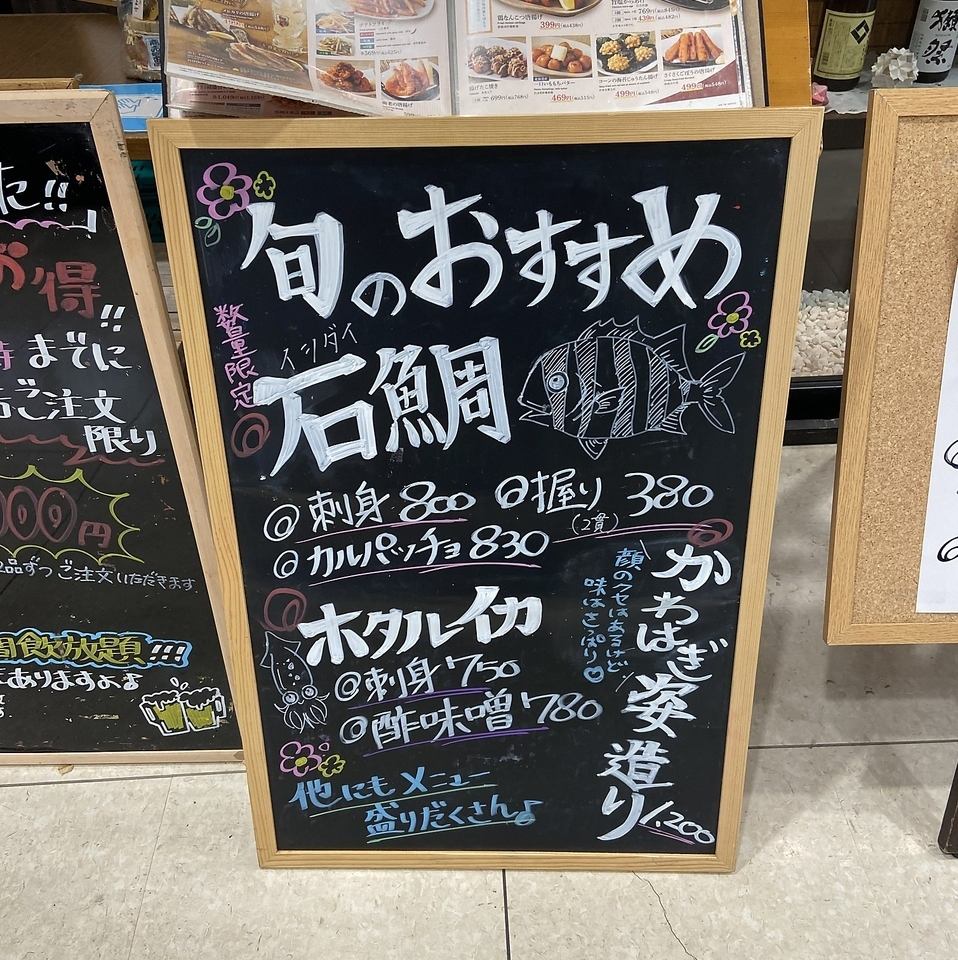 旬のおすすめ
数量限定
イシダイ
石鯛
◎刺身 800
◎握り 380
(2貫)
◎カルパッチョ 830
ホタルイカ
◎刺身 750
◎酢味噌 780
かわはぎ姿造り 1,200
顔のクセはあるけど
味はさっぱり♡
他にもメニュー
盛りだくさん♪
た!!
お得!!
時までに
ご注文
限り
00円
品ずつご注文いただきます
飲放題!!!
ありますよ♪
399円
469円
499円
499円
獺祭